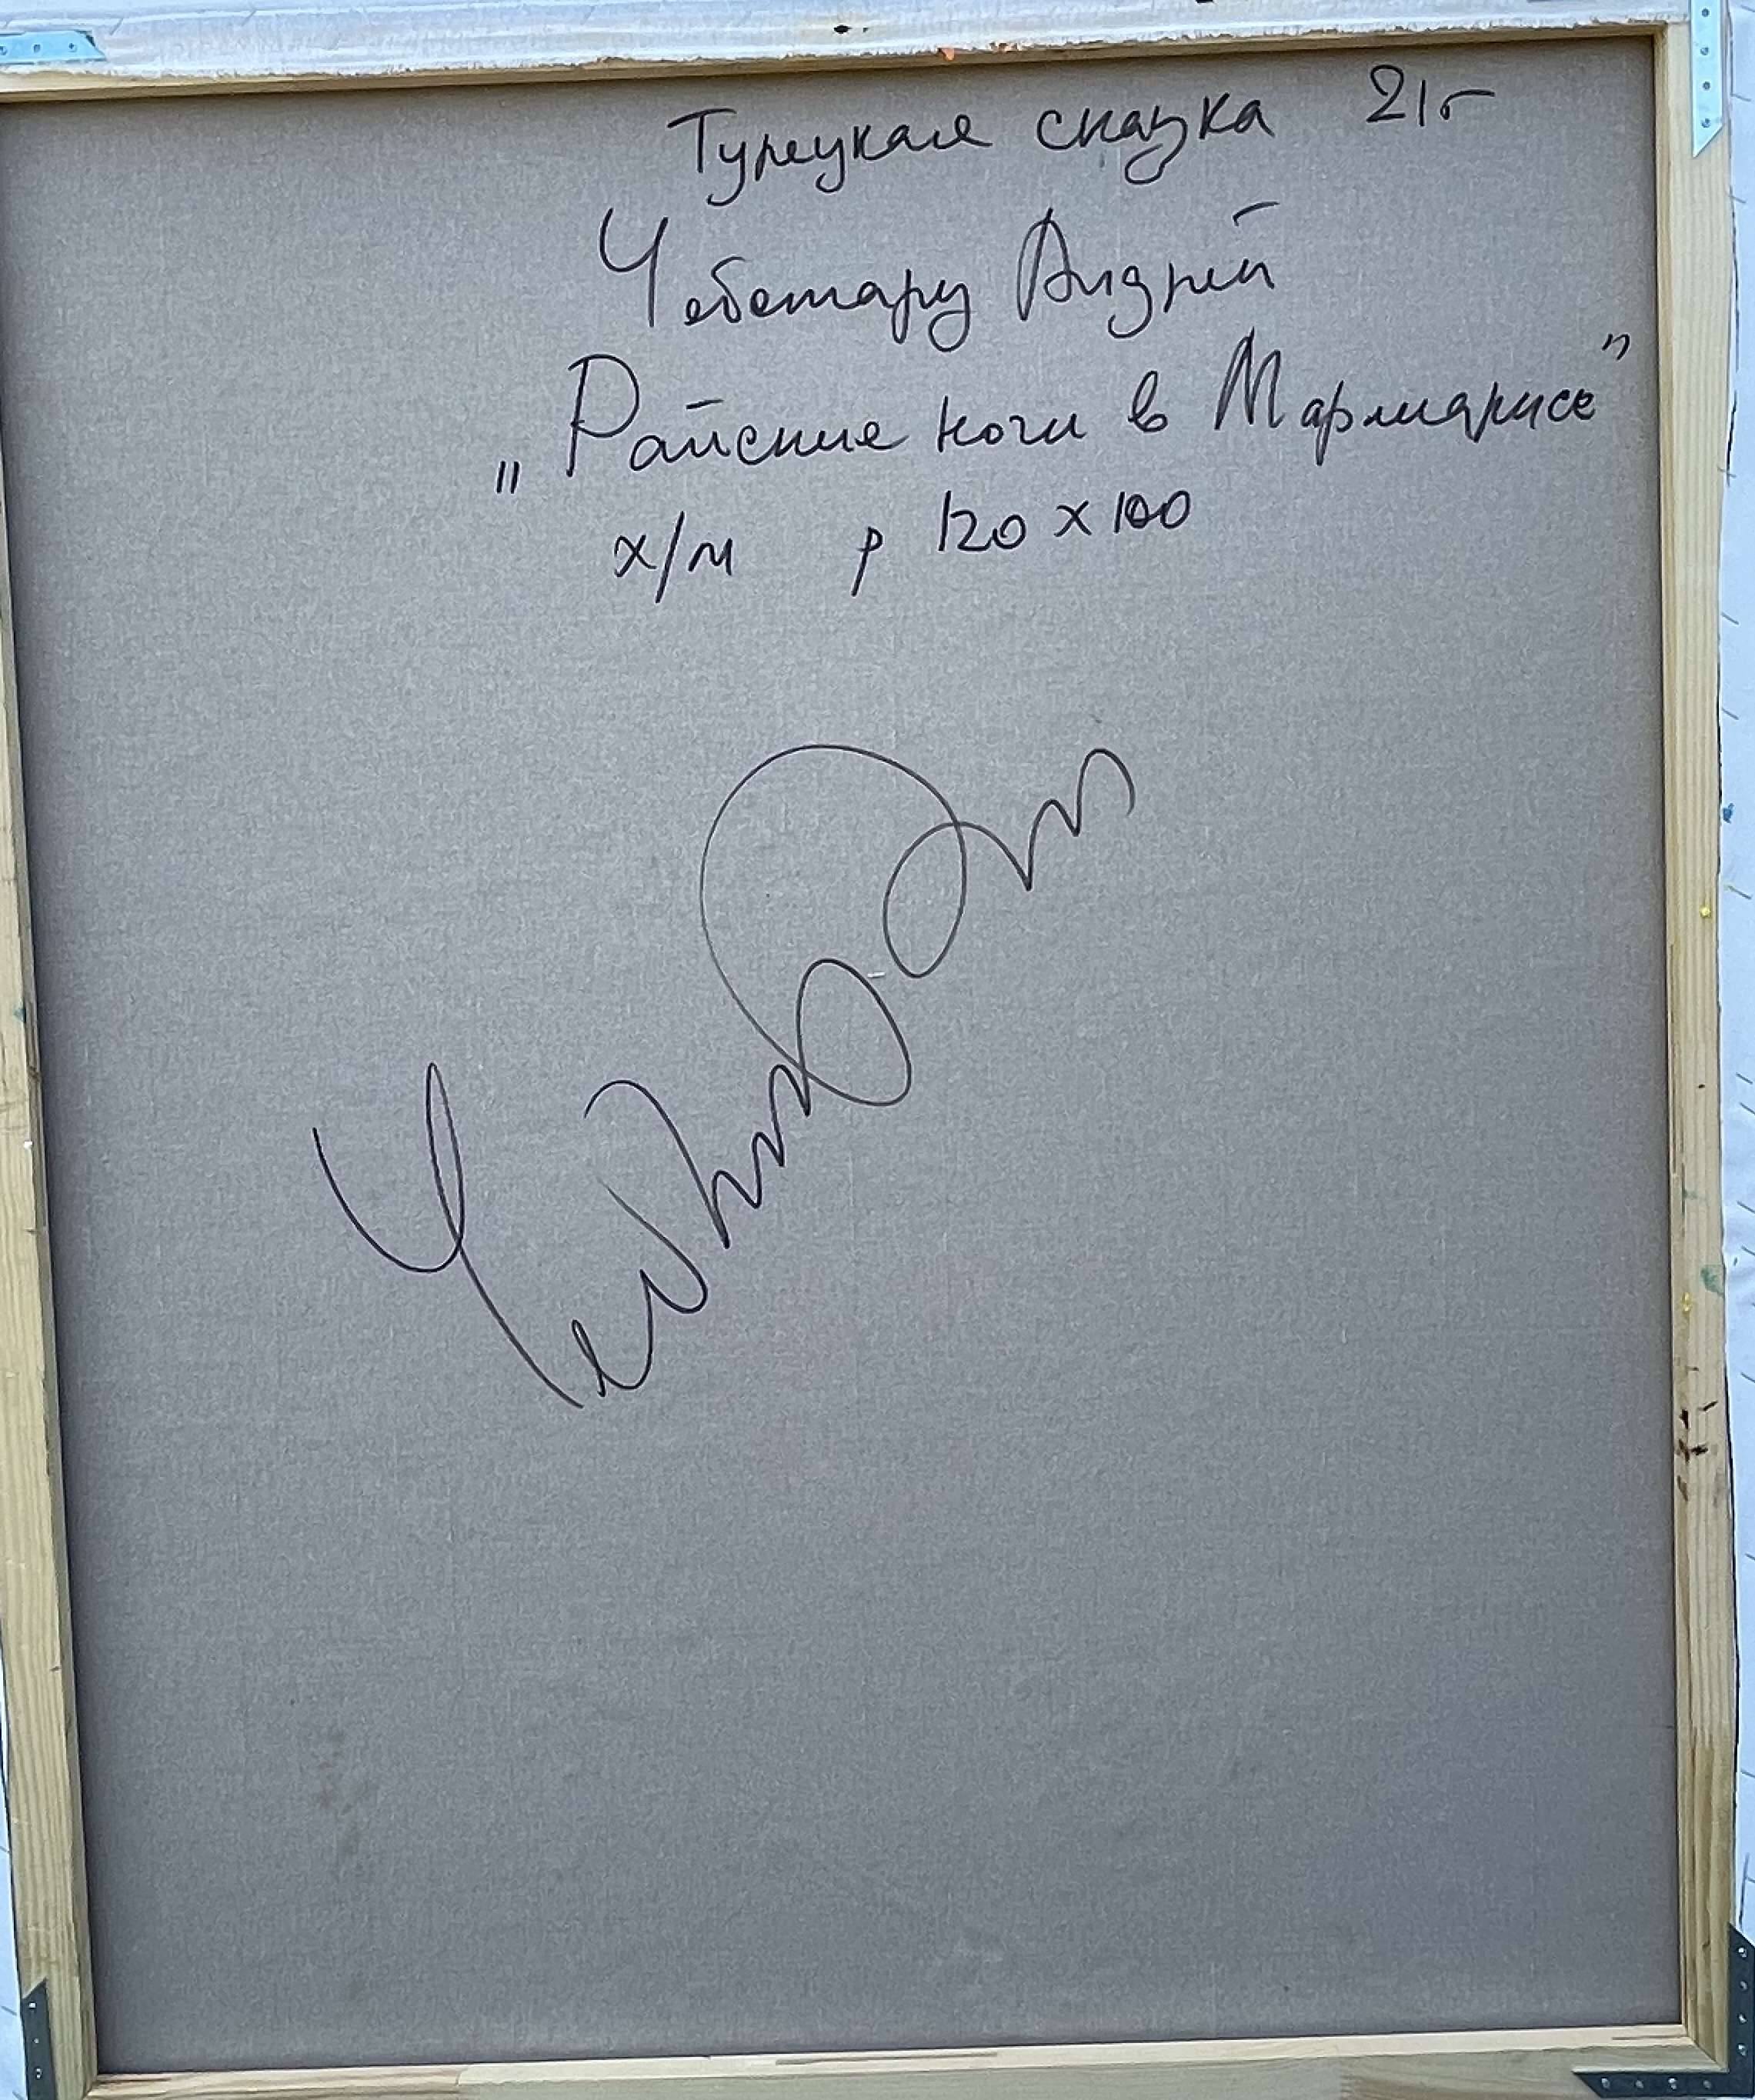 Турецкая сказка 21г
Чеботару Андрей
„Райские ночи в Мармарисе”
х/м р 120 х 100